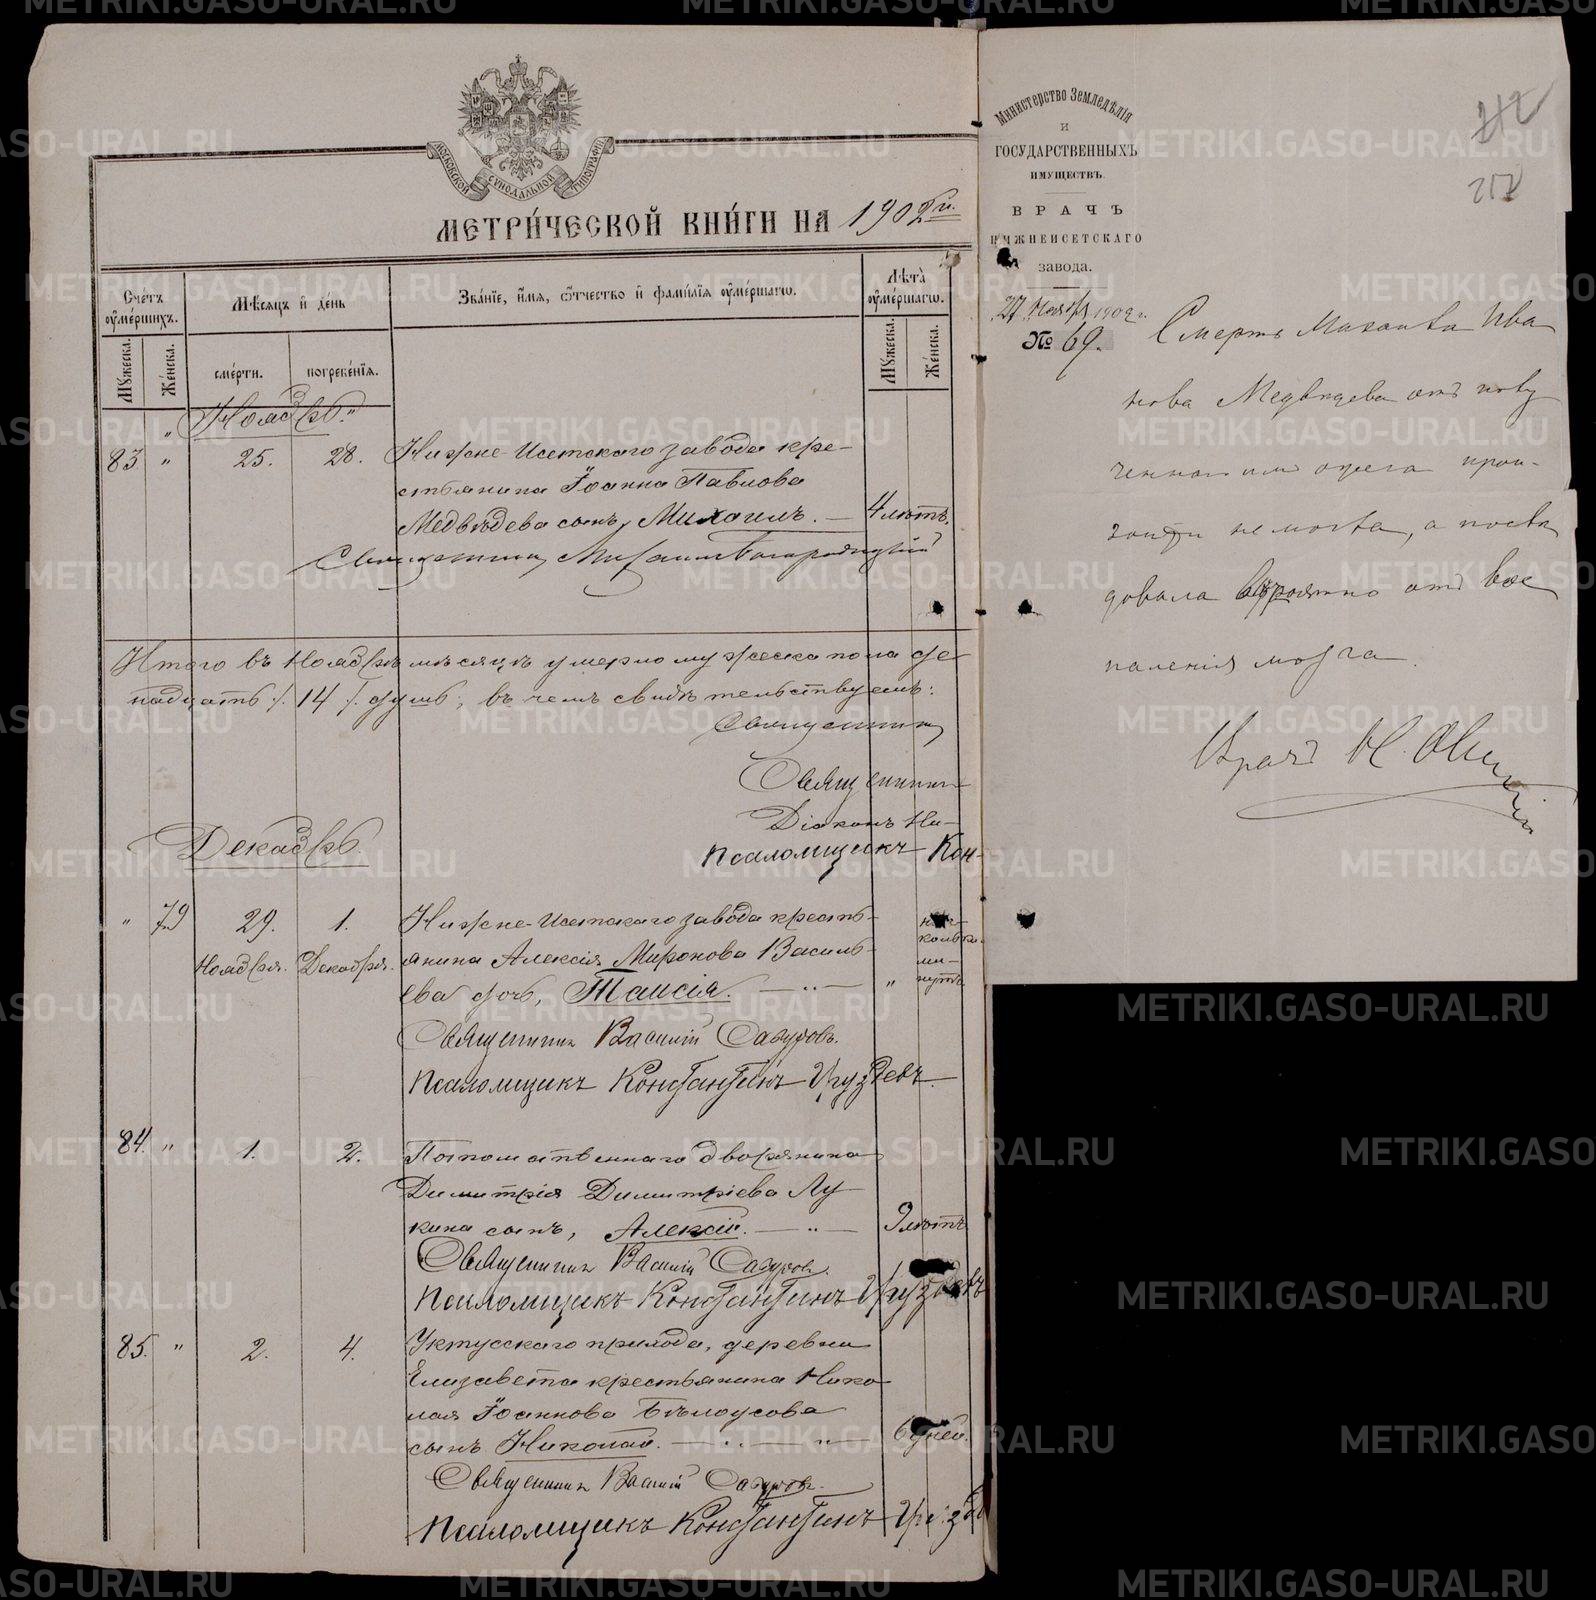 МОСКОВСКОЙ СѴНОДАЛЬНОЙ ТИПОГРАФІИ
МЕТРИЧЕСКОЙ КНИГИ НА 1902 й.
Счетъ умершихъ.
Мѣсяцъ и день
Званіе, имя, отчество и фамилія умершаго.
Лѣта умершаго.
Мужеска.
Женска.
смерти.
погребенія.
Мужеска.
Женска.
Ноябрь.
83 " 25. 28. Нижне-Исетскаго завода кре-
стьянина Іоанна Павлова
Медвѣдева сынъ, Михаилъ. — 4 лѣтъ.
Священникъ Михаилъ Богородицкій
Итого въ Ноябрѣ мѣсяцѣ умерло мужеска пола че-
надцать /. 14 /. душъ, въ чемъ свидѣтельствуемъ:
Священникъ
Священникъ
Діаконъ Ни-
Псаломщикъ Кон-
Декабрь.
" 79 29. 1. Нижне-Исетскаго завода кресть-
Ноября. Декабря. янина Алексія Миронова Василь-
ева дочь, Таисія. — " —
нѣс-
кольк.
ми-
" нутъ.
Священникъ Василій
Псаломщикъ Константинъ Груздевъ
84. " 1. 2. Потомственнаго дворянина
Димитрія Димитріева Лу-
кина сынъ, Алексій. — " — 9 лѣтъ
Священникъ Василій
Псаломщикъ Константинъ Груздевъ
85. " 2. 4. Уктусскаго прихода, деревни
Елизавета крестьянина Нико-
лая Іоаннова Бѣлоусова
сынъ Николай. — " — 6 дней.
Священникъ Василій
Псаломщикъ Константинъ
Министерство Земледѣлія
и
ГОСУДАРСТВЕННЫХЪ
ИМУЩЕСТВЪ.
ВРАЧЪ
НИЖНЕИСЕТСКАГО
завода.
27 Ноября 1902 г.
№ 69.
212
Смерть Михаила Ива
нова Медвѣдева отъ полу
ченнаго имъ ожега прои-
зойти не могла, а послѣ
довала вѣроятно отъ вос
паленія мозга.
Врачъ Н.
METRIKI.GASO-URAL.RU